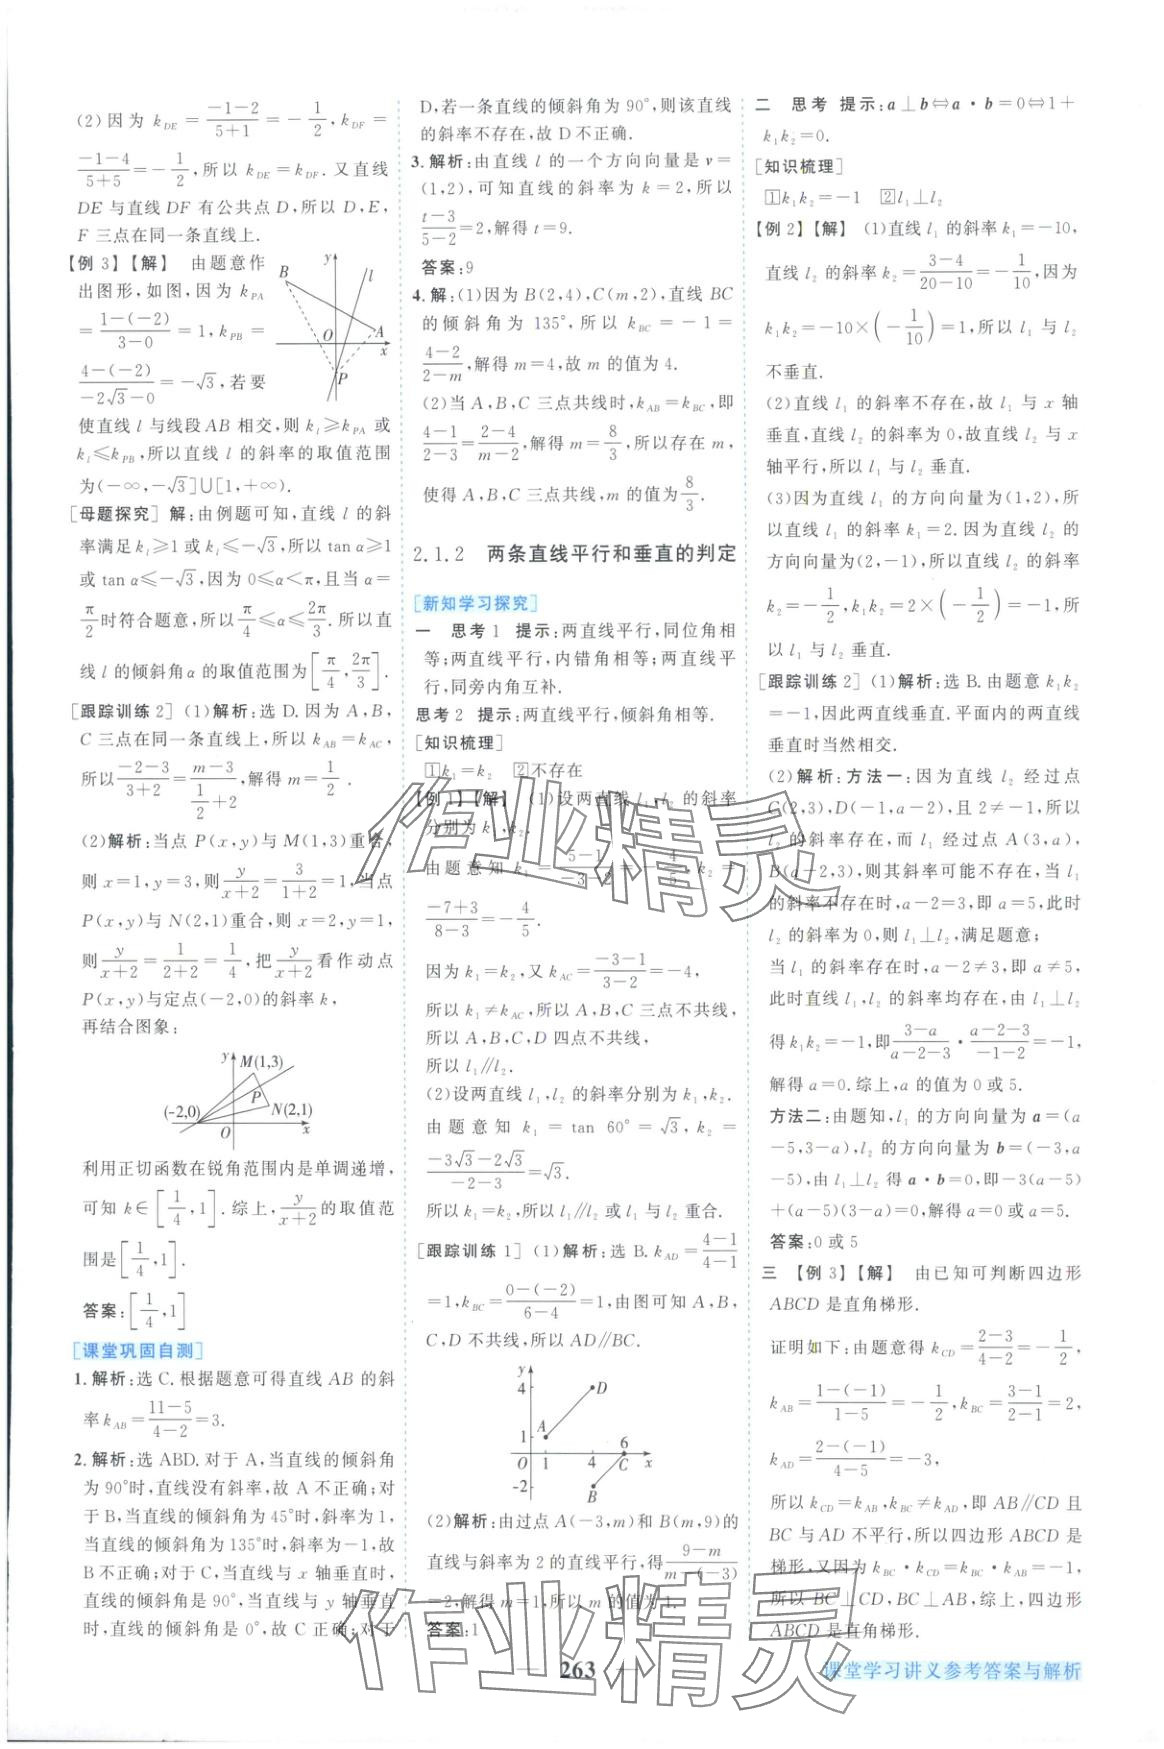 (2)因为 k_DE=(-1-2)/(5+1)=-1/2,k_DF=
(-1-4)/(5+5)=-1/2,所以 k_DE=k_DF.又直线
DE 与直线 DF 有公共点 D,所以 D,E,
F 三点在同一条直线上.
【例 3】【解】 由题意作
出图形,如图,因为 k_PA
=(1-(-2))/(3-0)=1,k_PB=
(4-(-2))/(-2√3-0)=-√3,若要
使直线 l 与线段 AB 相交,则 k_l≥k_PA 或
k_l≤k_PB,所以直线 l 的斜率的取值范围
为(-∞,-√3]∪[1,+∞).
B
y
l
O
A
x
P
[母题探究] 解:由例题可知,直线 l 的斜
率满足 k_l≥1 或 k_l≤-√3,所以 tan α≥1
或 tan α≤-√3,因为 0≤α<π,且当 α=
π/2 时符合题意,所以 π/4≤α≤2π/3.所以直
线 l 的倾斜角 α 的取值范围为[π/4,2π/3].
[跟踪训练 2] (1)解析:选 D.因为 A,B,
C 三点在同一条直线上,所以 k_AB=k_AC,
所以(-2-3)/(3+2)=(m-3)/(1/2+2),解得 m=1/2.
(2)解析:当点 P(x,y)与 M(1,3)重合,
则 x=1,y=3,则 y/(x+2)=3/(1+2)=1,当点
P(x,y)与 N(2,1)重合,则 x=2,y=1,
则 y/(x+2)=1/(2+2)=1/4,把 y/(x+2) 看作动点
P(x,y)与定点(-2,0)的斜率 k,
再结合图象:
y
M(1,3)
P
(-2,0)
N(2,1)
O
x
利用正切函数在锐角范围内是单调递增,
可知 k∈[1/4,1].综上,y/(x+2)的取值范
围是[1/4,1].
答案:[1/4,1]
[课堂巩固自测]
1.解析:选 C.根据题意可得直线 AB 的斜
率 k_AB=(11-5)/(4-2)=3.
2.解析:选 ABD.对于 A,当直线的倾斜角
为 90°时,直线没有斜率,故 A 不正确;对
于 B,当直线的倾斜角为 45°时,斜率为 1,
当直线的倾斜角为 135°时,斜率为-1,故
B 不正确;对于 C,当直线与 x 轴垂直时,
直线的倾斜角为 90°,当直线与 y 轴垂直
时,直线的倾斜角为 0°,故 C 正确;对于
D,若一条直线的倾斜角为 90°,则该直线
的斜率不存在,故 D 不正确.
3.解析:由直线 l 的一个方向向量是 v=
(1,2),可知直线的斜率为 k=2,所以
(t-3)/(5-2)=2,解得 t=9.
答案:9
4.解:(1)因为 B(2,4),C(m,2),直线 BC
的倾斜角为 135°,所以 k_BC=-1=
(4-2)/(2-m),解得 m=4,故 m 的值为 4.
(2)当 A,B,C 三点共线时,k_AB=k_BC,即
(4-1)/(2-3)=(2-4)/(m-2),解得 m=8/3,所以存在 m,
使得 A,B,C 三点共线,m 的值为 8/3.
2.1.2 两条直线平行和垂直的判定
[新知学习探究]
一 思考 1 提示:两直线平行,同位角相
等;两直线平行,内错角相等;两直线平
行,同旁内角互补.
思考 2 提示:两直线平行,倾斜角相等.
[知识梳理]
①k₁=k₂ ②不存在
【例 1】【解】 (1)设两直线 l₁,l₂ 的斜率
分别为 k₁,k₂.
由题意知 k₁=(5-1)/(-3-2)=-4/5,k₂=
(-7+3)/(8-3)=-4/5.
因为 k₁=k₂,又 k_AC=(-3-1)/(3-2)=-4,
所以 k₁≠k_AC,所以 A,B,C 三点不共线,
所以 A,B,C,D 四点不共线,
所以 l₁∥l₂.
(2)设两直线 l₁,l₂ 的斜率分别为 k₁,k₂.
由题意知 k₁=tan 60°=√3,k₂=
(-3√3-2√3)/(-2-3)=√3.
所以 k₁=k₂,所以 l₁∥l₂ 或 l₁ 与 l₂ 重合.
[跟踪训练 1] (1)解析:选 B.k_AD=(4-1)/(4-1)
=1,k_BC=(0-(-2))/(6-4)=1,由图可知 A,B,
C,D 不共线,所以 AD∥BC.
y
4
D
A
1
6
O 1 4 C x
-2
B
(2)解析:由过点 A(-3,m)和 B(m,9)的
直线与斜率为 2 的直线平行,得(9-m)/(m-(-3))
=2,解得 m=1,所以 m 的值为 1.
答案:1
二 思考 提示:a⊥b⇔a·b=0⇔1+
k₁k₂=0.
[知识梳理]
①k₁k₂=-1 ②l₁⊥l₂
【例 2】【解】 (1)直线 l₁ 的斜率 k₁=-10,
直线 l₂ 的斜率 k₂=(3-4)/(20-10)=-1/10,因为
k₁k₂=-10×(-1/10)=1,所以 l₁ 与 l₂
不垂直.
(2)直线 l₁ 的斜率不存在,故 l₁ 与 x 轴
垂直,直线 l₂ 的斜率为 0,故直线 l₂ 与 x
轴平行,所以 l₁ 与 l₂ 垂直.
(3)因为直线 l₁ 的方向向量为(1,2),所
以直线 l₁ 的斜率 k₁=2.因为直线 l₂ 的
方向向量为(2,-1),所以直线 l₂ 的斜率
k₂=-1/2,k₁k₂=2×(-1/2)=-1,所
以 l₁ 与 l₂ 垂直.
[跟踪训练 2] (1)解析:选 B.由题意 k₁k₂
=-1,因此两直线垂直.平面内的两直线
垂直时当然相交.
(2)解析:方法一:因为直线 l₂ 经过点
C(2,3),D(-1,a-2),且 2≠-1,所以
l₂ 的斜率存在,而 l₁ 经过点 A(3,a),
B(a-2,3),则其斜率可能不存在,当 l₁
的斜率不存在时,a-2=3,即 a=5,此时
l₂ 的斜率为 0,则 l₁⊥l₂,满足题意;
当 l₁ 的斜率存在时,a-2≠3,即 a≠5,
此时直线 l₁,l₂ 的斜率均存在,由 l₁⊥l₂
得 k₁k₂=-1,即(3-a)/(a-2-3)·(a-2-3)/(-1-2)=-1,
解得 a=0.综上,a 的值为 0 或 5.
方法二:由题知,l₁ 的方向向量为 a=(a
-5,3-a),l₂ 的方向向量为 b=(-3,a
-5),由 l₁⊥l₂ 得 a·b=0,即-3(a-5)
+(a-5)(3-a)=0,解得 a=0 或 a=5.
答案:0 或 5
三 【例 3】【解】 由已知可判断四边形
ABCD 是直角梯形.
证明如下:由题意得 k_CD=(2-3)/(4-2)=-1/2,
k_AB=(1-(-1))/(1-5)=-1/2,k_BC=(3-1)/(2-1)=2,
k_AD=(2-(-1))/(4-5)=-3,
所以 k_CD=k_AB,k_BC≠k_AD,即 AB∥CD 且
BC 与 AD 不平行,所以四边形 ABCD 是
梯形,又因为 k_BC·k_CD=k_BC·k_AB=-1,
所以 BC⊥CD,BC⊥AB,综上,四边形
ABCD 是直角梯形.
作业精灵
作业精灵
263
课堂学习讲义参考答案与解析